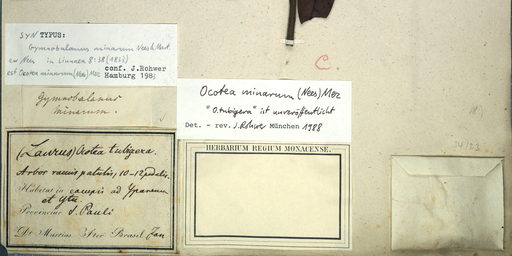 SYN TYPUS:
Gymnobalanus minarum Nees & Mart.
ex Nees in Linnaea 8: 38 (1833)
est Ocotea minarum (Nees) Mez
conf. J.Rohwer
Hamburg 198
Gymnobalanus
minarum.
C.
Ocotea minarum (Nees) Mez
"O. tubigera" ist unveröffentlicht
Det. - rev. J. Rohwer München 1988
HERBARIUM REGIUM MONACENSE.
(Laurus) Ocotea tubigera.
Arbor ramis patulis, 10-12 pedalis.
Habitat in campis ad Ypanema
et Ytu.
Provinciae S. Pauli
Dr. Martius Iter Brasil. Jan